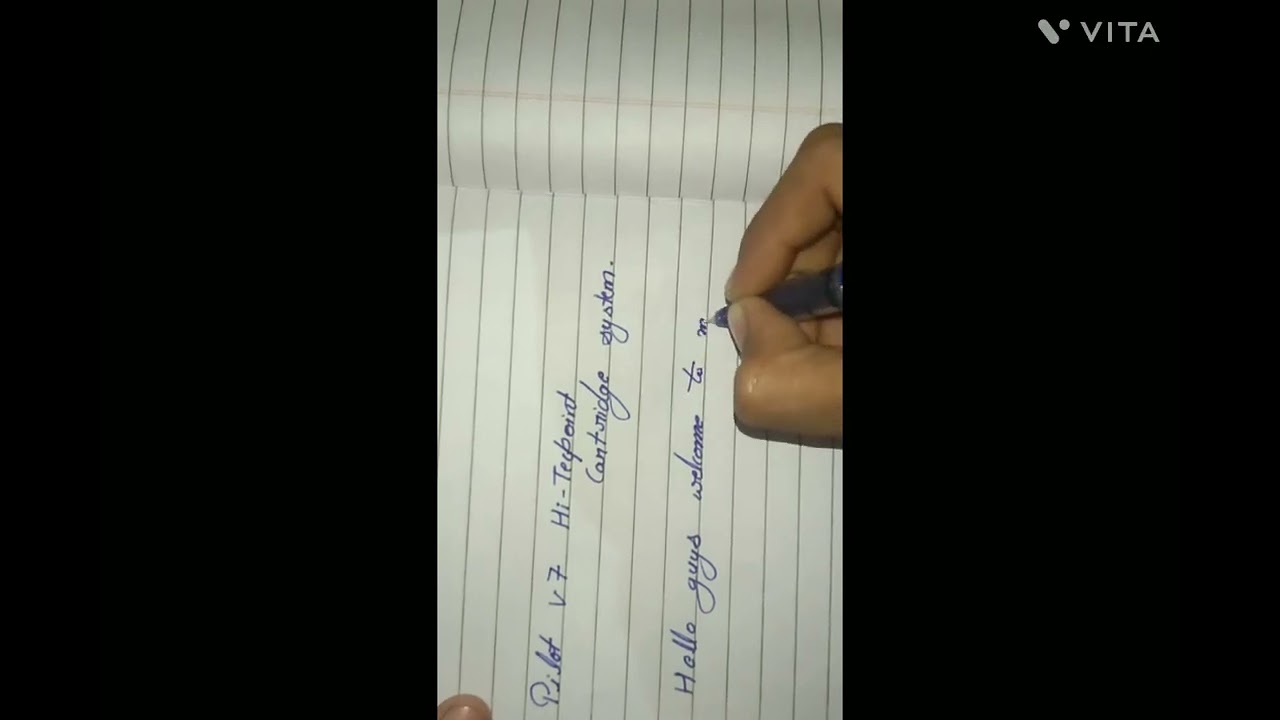 VITA
Pilot V7 Hi-Tecpoint
Cartridge system.
Hello guys welcome to m